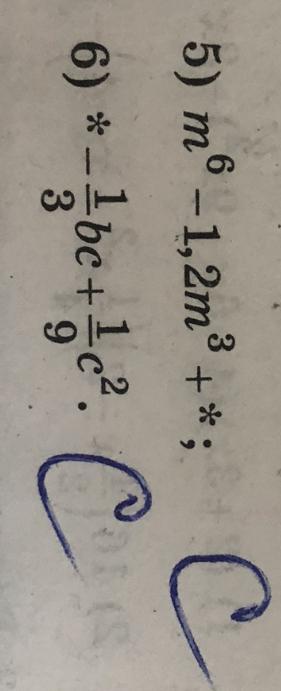 5) m⁶ − 1,2m³ + *;
6) * − 1/3 bc + 1/9 c².